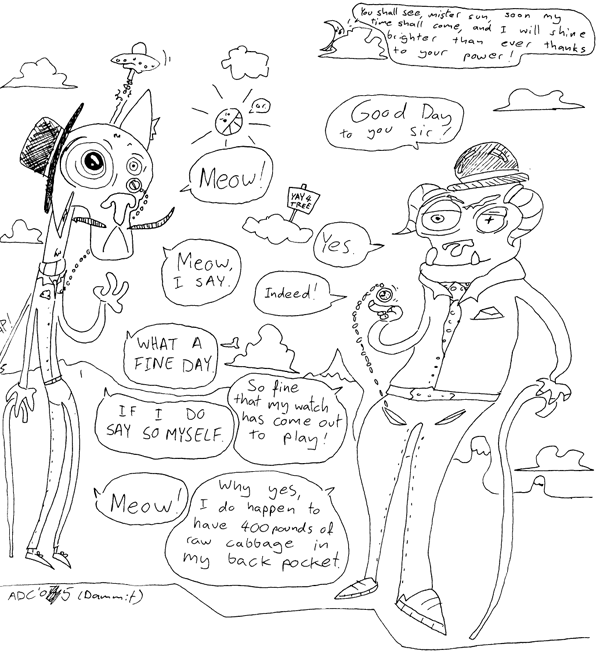 You shall see, mister sun, soon my
time shall come, and I will shine
brighter than ever thanks
to your power!
or.
Good Day
to you sir!
Meow!
YAY 4
TREE
Yes.
Meow,
I SAY.
Indeed!
WHAT A
FINE DAY.
So fine
that my watch
has come out
to play!
IF I DO
SAY SO MYSELF.
Meow!
Why yes,
I do happen to
have 400 pounds of
raw cabbage in
my back pocket.
(Damm:t)